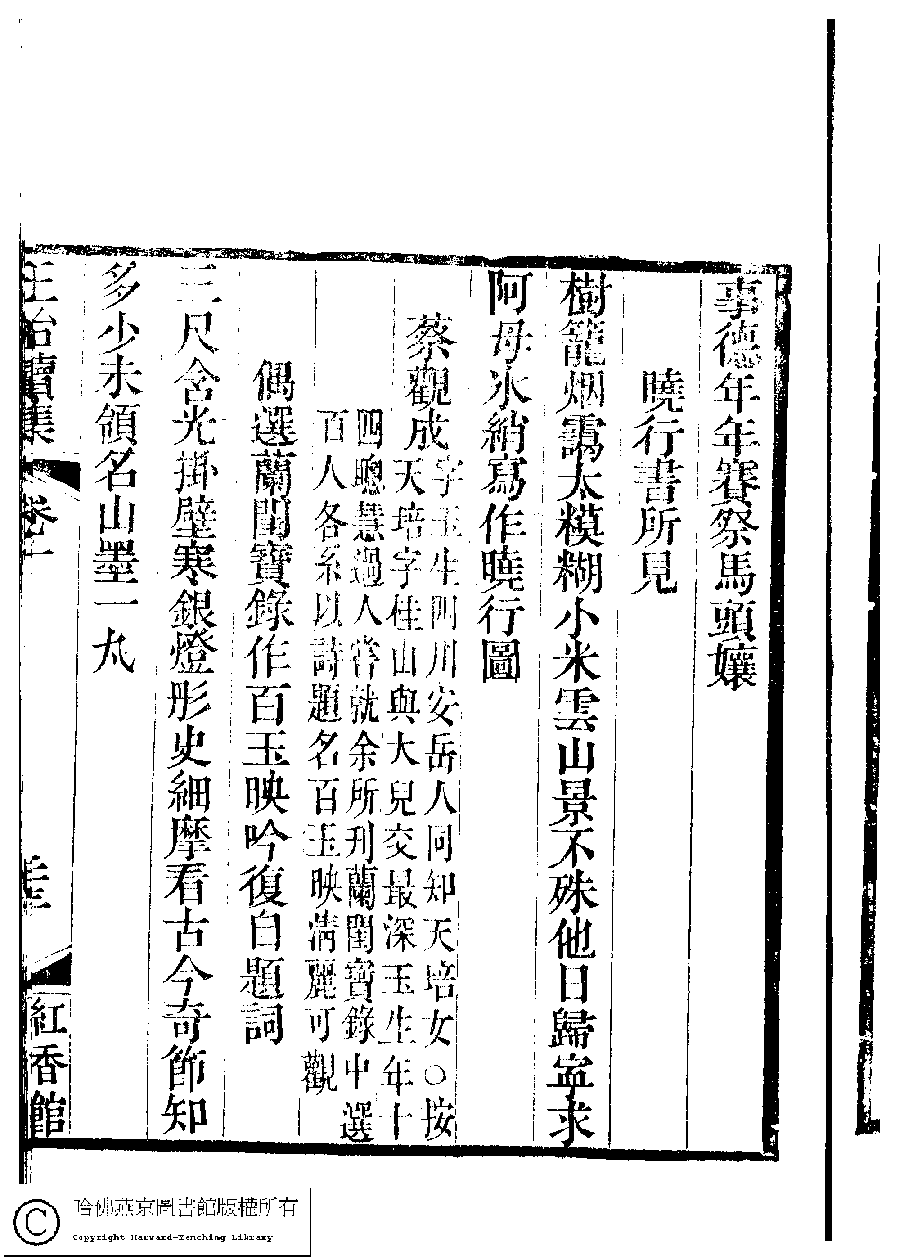 事德年年賽祭馬頭孃
曉行書所見
樹籠烟靄太模糊小米雲山景不殊他日歸寍求
阿母氷綃寫作曉行圖
蔡觀成
字玉生四川安岳人同知天培女○按
天培字桂山與大兒交最深玉生年十
四聰慧過人嘗就余所刋蘭閨寶錄中選
百人各系以詩題名百玉映淸麗可觀
偶選蘭閨寶錄作百玉映吟復自題詞
三尺含光掛壁寒銀燈彤史細摩看古今奇節知
多少未領名山墨一丸
續集 卷二
紅香館
哈佛燕京圖書館版權所有
Copyright Harvard-Yenching Library